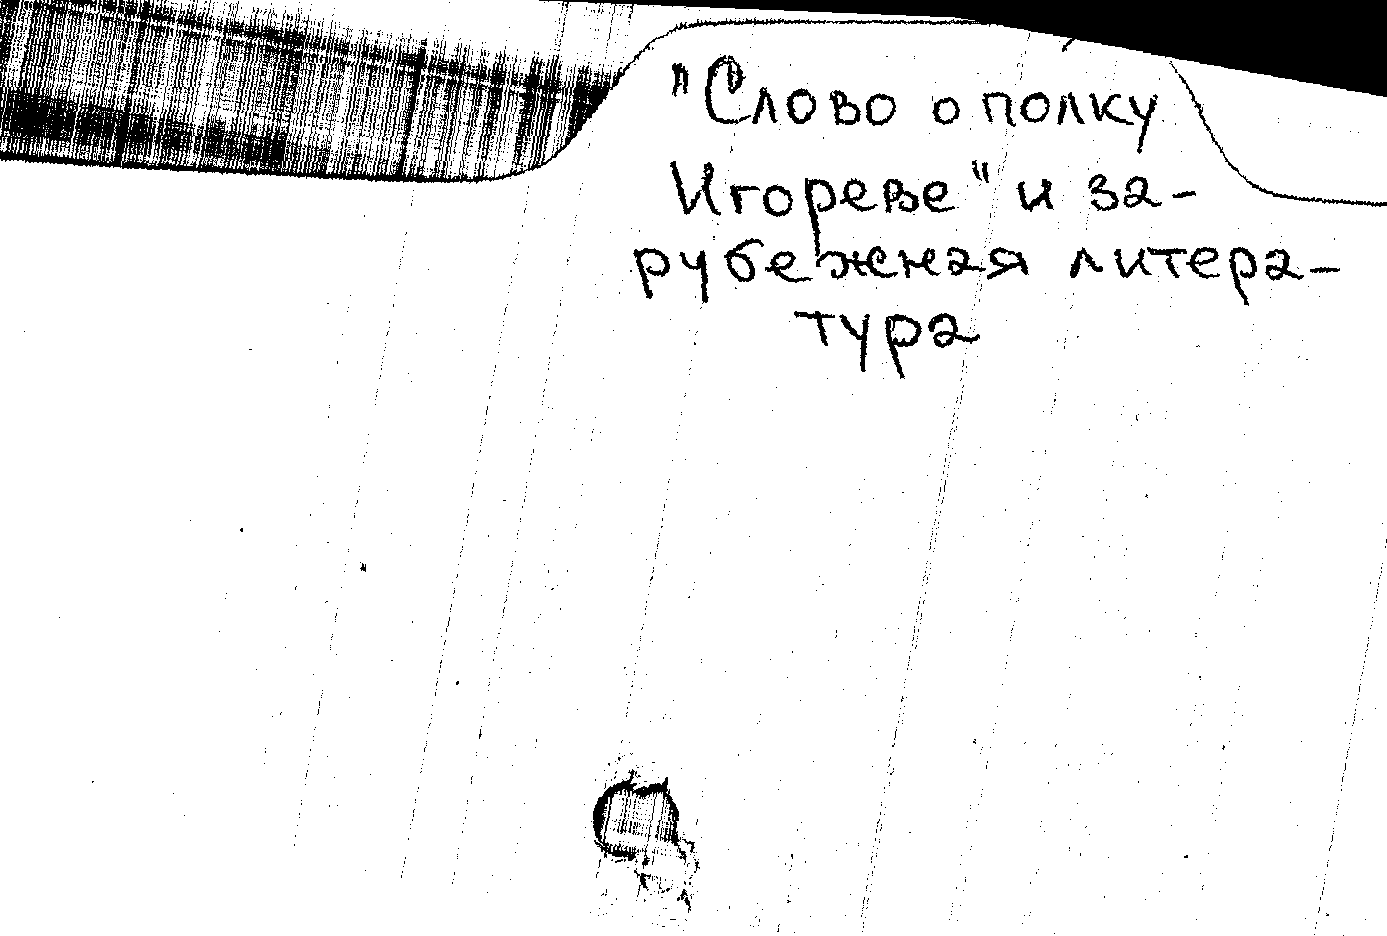 "Слово о полку
Игореве" и за-
рубежная литера-
тура